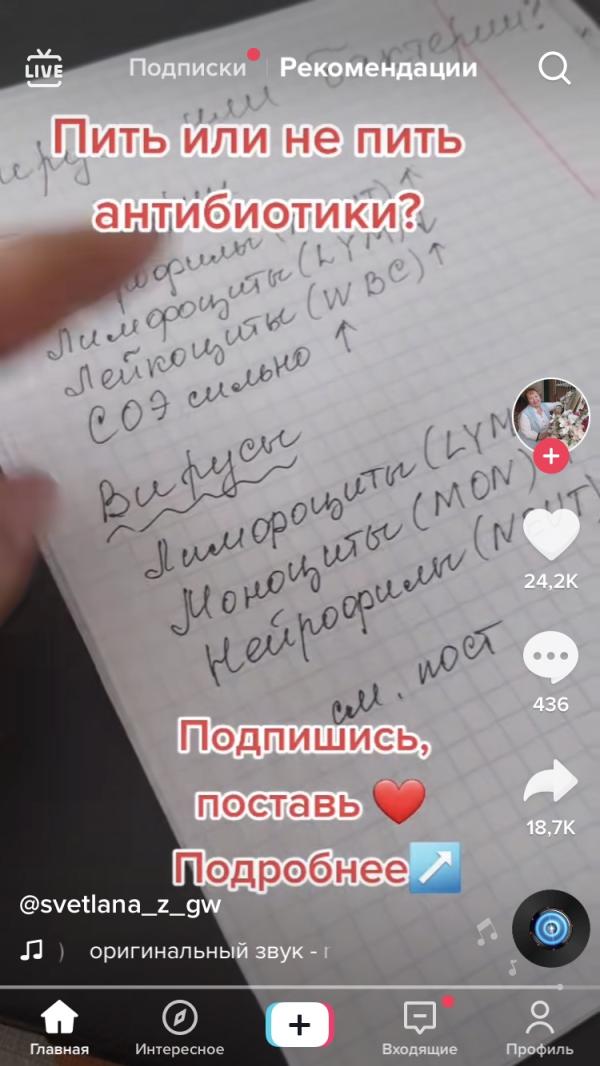 LIVE
Подписки
Рекомендации
или бактерии?
Пить или не пить
антибиотики?
Лимфоциты (LYM)↓
Лейкоциты (WBC)↑
СОЭ сильно ↑
Вирусы
Лимфоциты (LYM
Моноциты (MON)
Нейрофилы
см. пост
Подпишись,
поставь ❤️
Подробнее↗️
24,2K
436
18,7K
@svetlana_z_gw
оригинальный звук -
Главная
Интересное
Входящие
Профиль